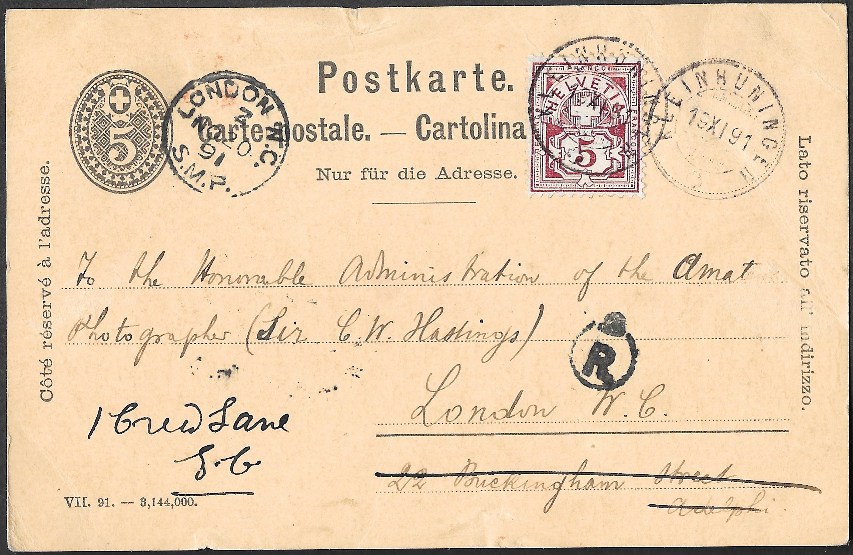 Postkarte.
Carte postale. — Cartolina
Nur für die Adresse.
5
LONDON W.C.
91
S.M.P.
FRANCO
HELVETIA
5
KLEINHÜNINGEN
19 XI 91
Côté réservé à l'adresse.
Lato riservato all' indirizzo.
To the Honorable Administration of the Amat
Photographer (Sir C. W. Hastings)
R
London W.C.
22 Buckingham Street
Adelphi.
1 Creed Lane
E.C
VII. 91. — 3,144,000.